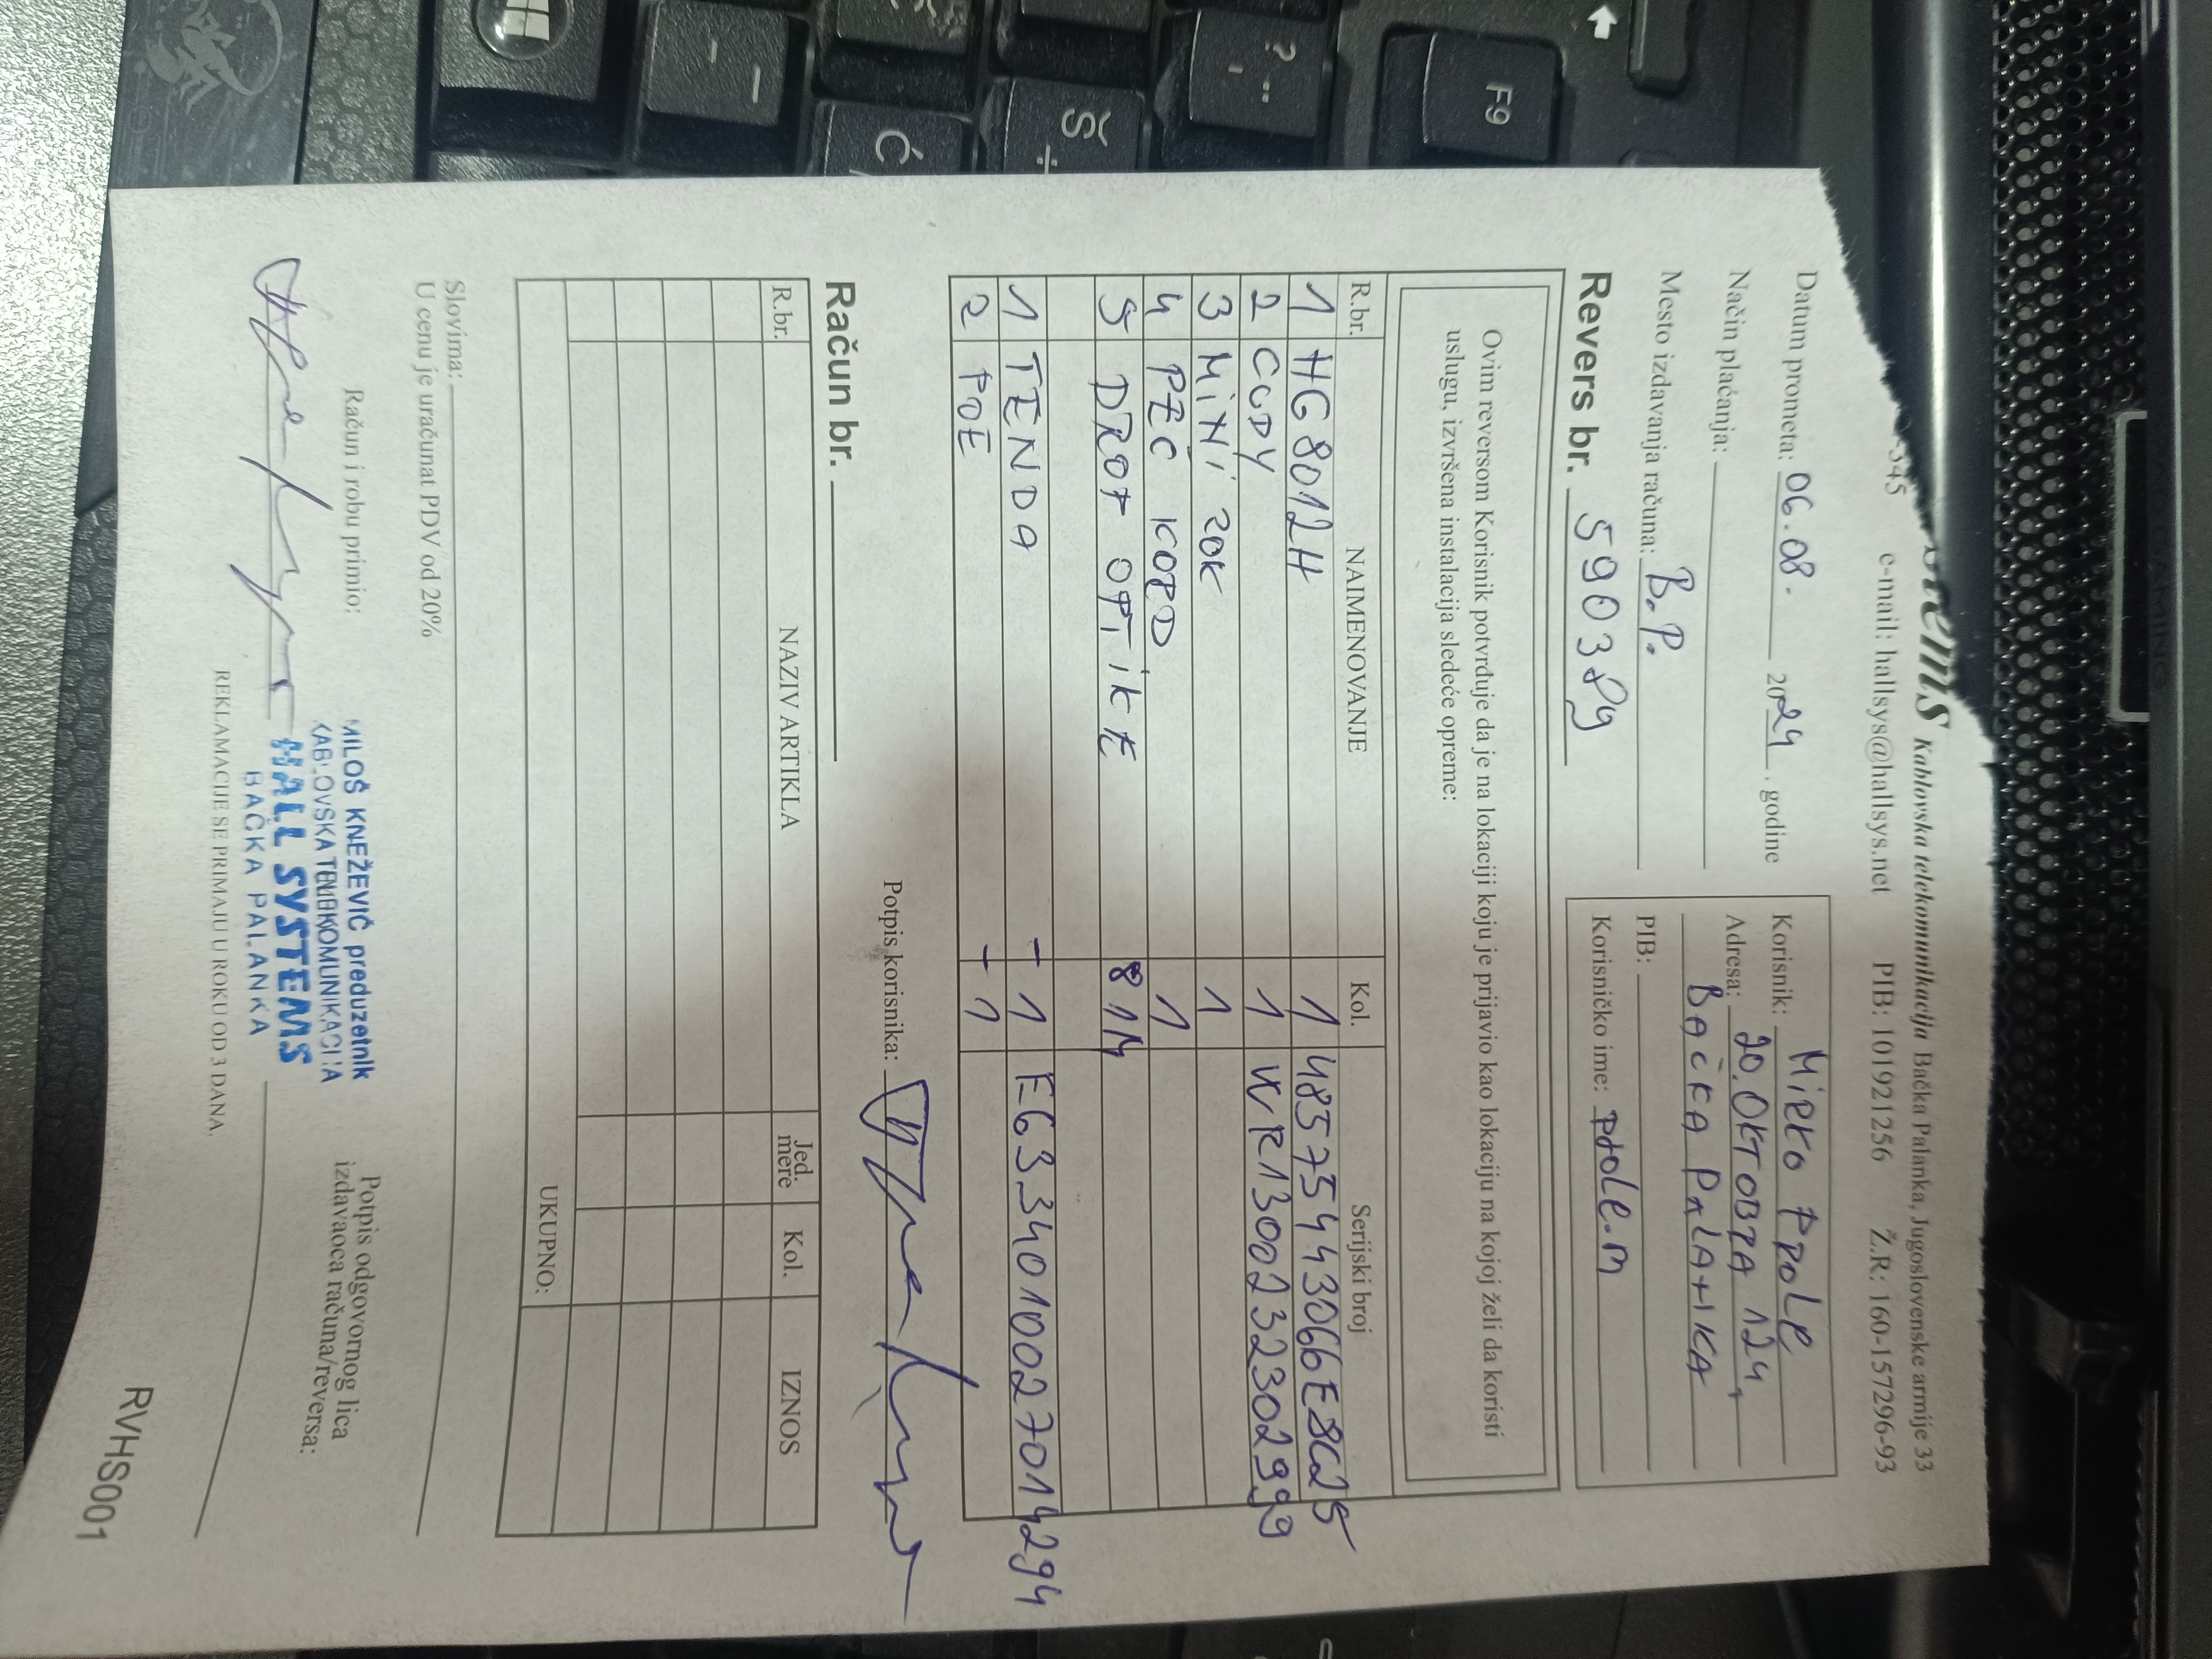 Kablovska telekomunikacija Bačka Palanka, Jugoslovenske armije 33
-345 e-mail: hallsys@hallsys.net PIB: 101921256 Ž.R: 160-157296-93
Datum prometa: 06.08. 2024. godine
Način plaćanja:
Mesto izdavanja računa: B.P.
Korisnik: MiRKO PROLE
Adresa: 20.OKTOBRA 124,
BAČKA PALANKA
PIB:
Korisničko ime: prole.m
Revers br. 590389
Ovim reversom Korisnik potvrđuje da je na lokaciji koju je prijavio kao lokaciju na kojoj želi da koristi
uslugu, izvršena instalacija sledeće opreme:
R.br. NAIMENOVANJE Kol. Serijski broj
1 HG8012H 1 48575443066E8C25
2 CUDY 1 WR1300232302999
3 MiNi ZOK 1
4 PEČ KORD 1
5 DROP OPTIKE 81M
1 TENDA -1 E6334010027014294
2 POE -1
Potpis korisnika:
Račun br.
R.br. NAZIV ARTIKLA Jed. mere Kol. IZNOS
UKUPNO:
Slovima:
U cenu je uračunat PDV od 20%
Račun i robu primio:
Potpis odgovornog lica
izdavaoca računa/reversa:
MILOŠ KNEŽEVIĆ preduzetnik
KABLOVSKA TELEKOMUNIKACIJA
HALL SYSTEMS
BAČKA PALANKA
REKLAMACIJE SE PRIMAJU U ROKU OD 3 DANA.
RVHS001
F9
Š
Ć